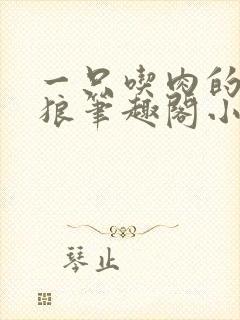 一只喫肉的
狼筆趣閣小
琴止